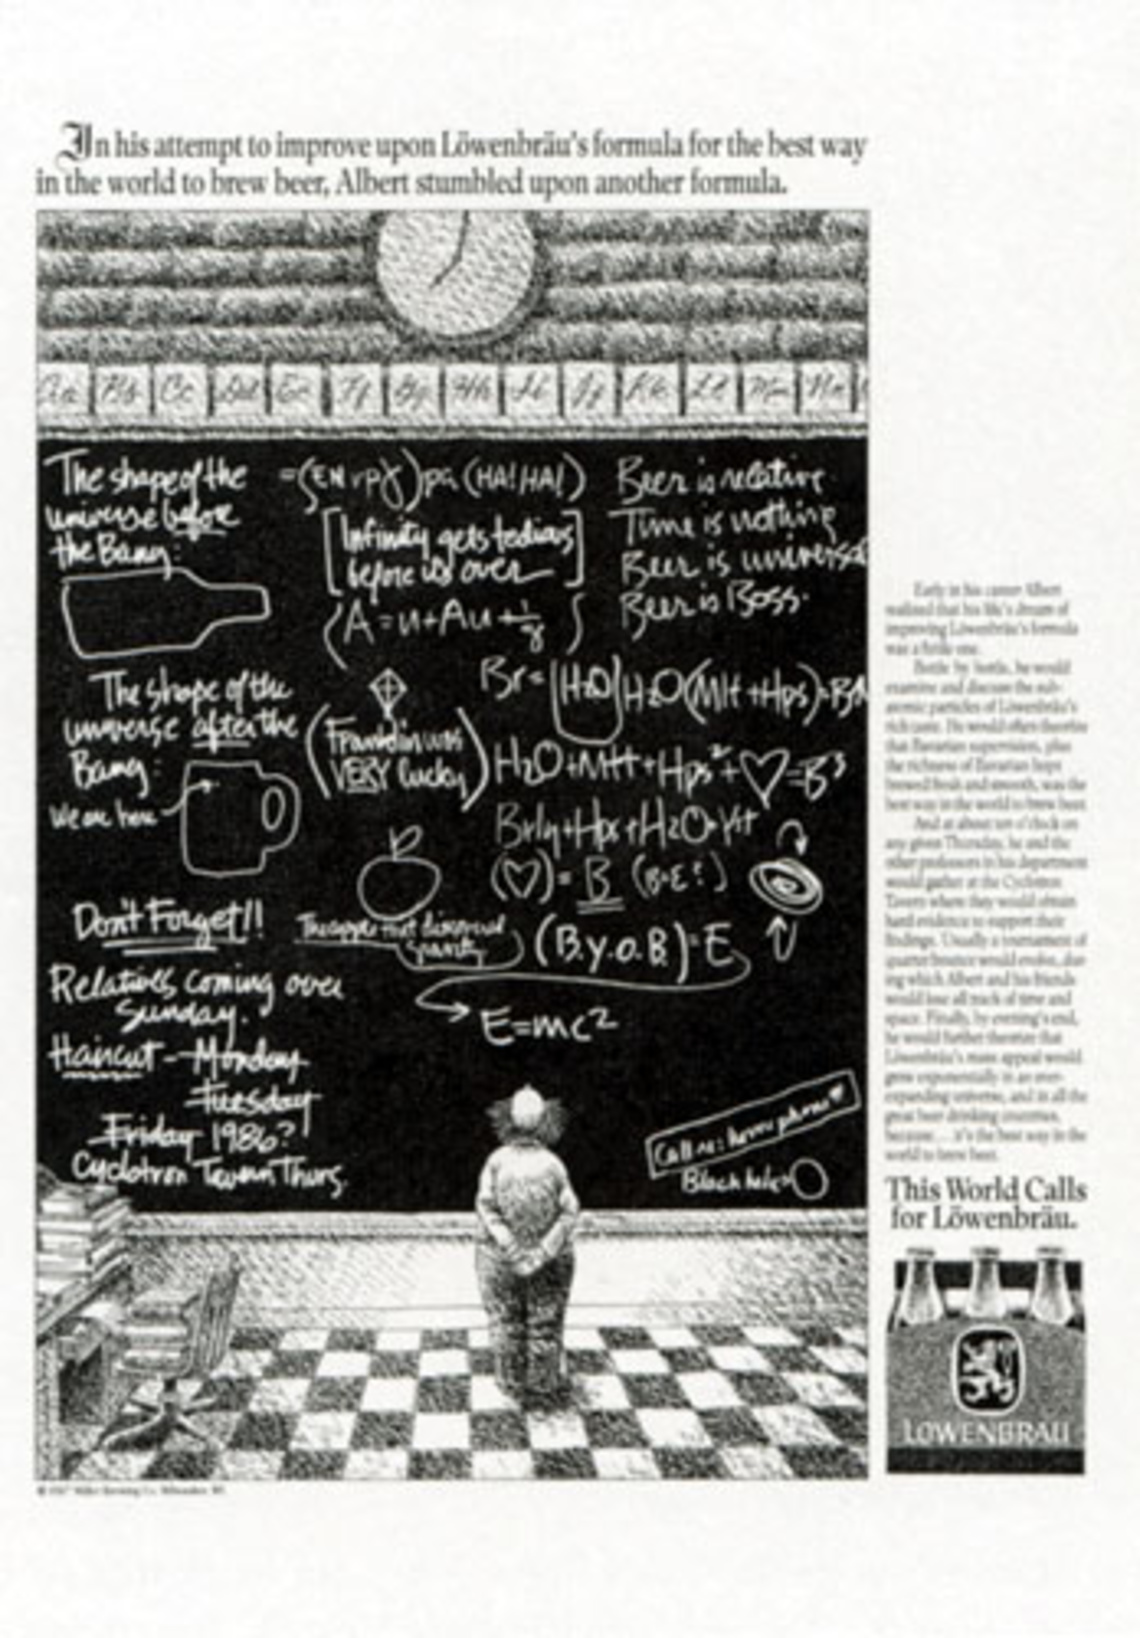 In his attempt to improve upon Löwenbräu's formula for the best way
in the world to brew beer, Albert stumbled upon another formula.
Aa Bb Cc Dd Ee Ff Gg Hh Ii Jj Kk Ll Mm Nn
The shape of the
universe before
the Bang:
(HA! HA!)
[Infinity gets tedious
before it's over]
A=u+Au+1/8
Beer is relative.
Time is nothing
Beer is universal
Beer is Boss.
The shape of the
universe after the
Bang:
We are here
(Franklin was
VERY lucky)
Br=(H2O)H2O(Mlt+Hps)=
H2O+Mlt+Hps²+♡=B³
Brly+Hps+H2O+Yst
(♡)=B (B=E?)
The apple that discovered
gravity
(B.Y.O.B.)=E
E=mc²
Don't Forget!!
Relatives coming over
Sunday.
Haircut - Monday
Tuesday
Friday 1986?
Cyclotron Tavern Thurs.
Call re: hover phone
Black hole=O
Early in his career Albert
realized that his life's dream of
improving Löwenbräu's formula
was a futile one.
Bottle by bottle, he would
examine and discuss the sub-
atomic particles of Löwenbräu's
rich taste. He would often theorize
that Bavarian supervision, plus
the richness of Bavarian hops
brewed fresh and smooth, was the
best way in the world to brew beer.
And at about ten o'clock on
any given Thursday, he and the
other professors in his department
would gather at the Cyclotron
Tavern where they would obtain
hard evidence to support their
findings. Usually a tournament of
quarter bounce would evolve, dur-
ing which Albert and his friends
would lose all track of time and
space. Finally, by evening's end,
he would further theorize that
Löwenbräu's mass appeal would
grow exponentially in an ever-
expanding universe, and in all the
great beer drinking countries,
because... it's the best way in the
world to brew beer.
This World Calls
for Löwenbräu.
LÖWENBRÄU
© 1987 Miller Brewing Co., Milwaukee, WI